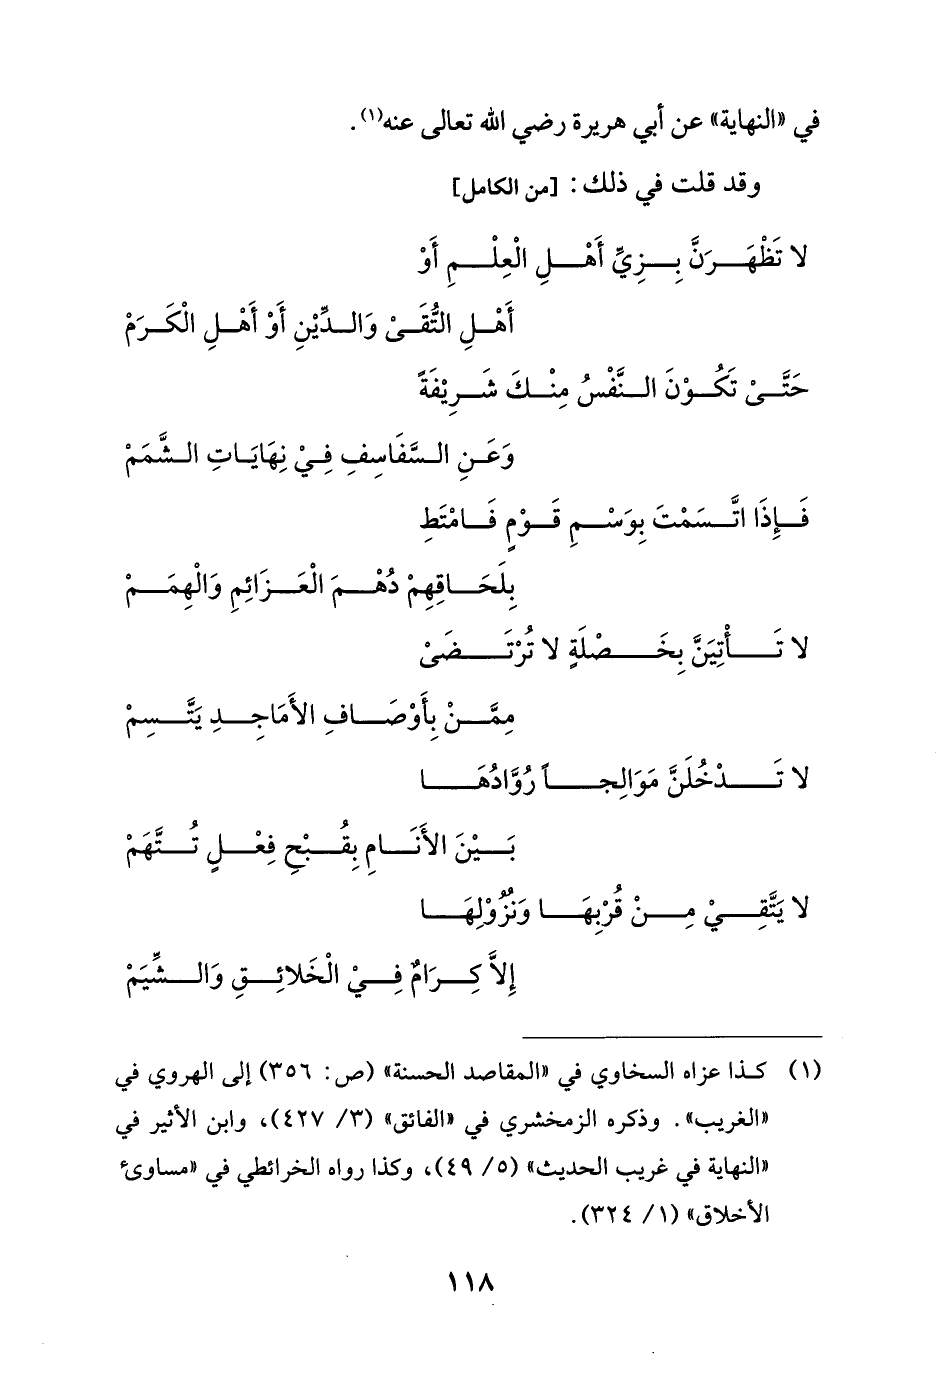 في «النهاية» عن أبي هريرة رضي الله تعالى عنه(١).
وقد قلت في ذلك: [من الكامل]
لا تَظْهَرَنَّ بِزِيِّ أَهْلِ الْعِلْمِ أَوْ
أَهْلِ التُّقَىْ وَالدِّيْنِ أَوْ أَهْلِ الْكَرَمْ
حَتَّىْ تَكُوْنَ النَّفْسُ مِنْكَ شَرِيْفَةً
وَعَنِ السَّفَاسِفِ فِيْ نِهَايَاتِ الشَّمَمْ
فَإِذَا اتَّسَمْتَ بِوَسْمِ قَوْمٍ فَامْتَطِ
بِلَحَاقِهِمْ دُهْمَ الْعَزَائِمِ وَالْهِمَمْ
لا تَأْتِيَنَّ بِخَصْلَةٍ لا تُرْتَضَىْ
مِمَّنْ بِأَوْصَافِ الأَمَاجِدِ يَتَّسِمْ
لا تَدْخُلَنَّ مَوَالِجاً رُوَّادُهَا
بَيْنَ الأَنَامِ بِقُبْحِ فِعْلٍ تُتَّهَمْ
لا يَتَّقِيْ مِنْ قُرْبِهَا وَنُزُوْلِهَا
إِلاَّ كِرَامٌ فِيْ الْخَلائِقِ وَالشِّيَمْ
(١) كذا عزاه السخاوي في «المقاصد الحسنة» (ص: ٣٥٦) إلى الهروي في
«الغريب». وذكره الزمخشري في «الفائق» (٣/ ٤٢٧)، وابن الأثير في
«النهاية في غريب الحديث» (٥/ ٤٩)، وكذا رواه الخرائطي في «مساوئ
الأخلاق» (١/ ٣٢٤).
١١٨